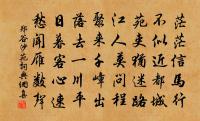 茫茫信馬行
不似近都城
苑吏猶迷路
江人莫問程
聚來千嶂出
落去一川平
日暮客心速
愁聞雁數聲
鄭谷沙苑詞典網集